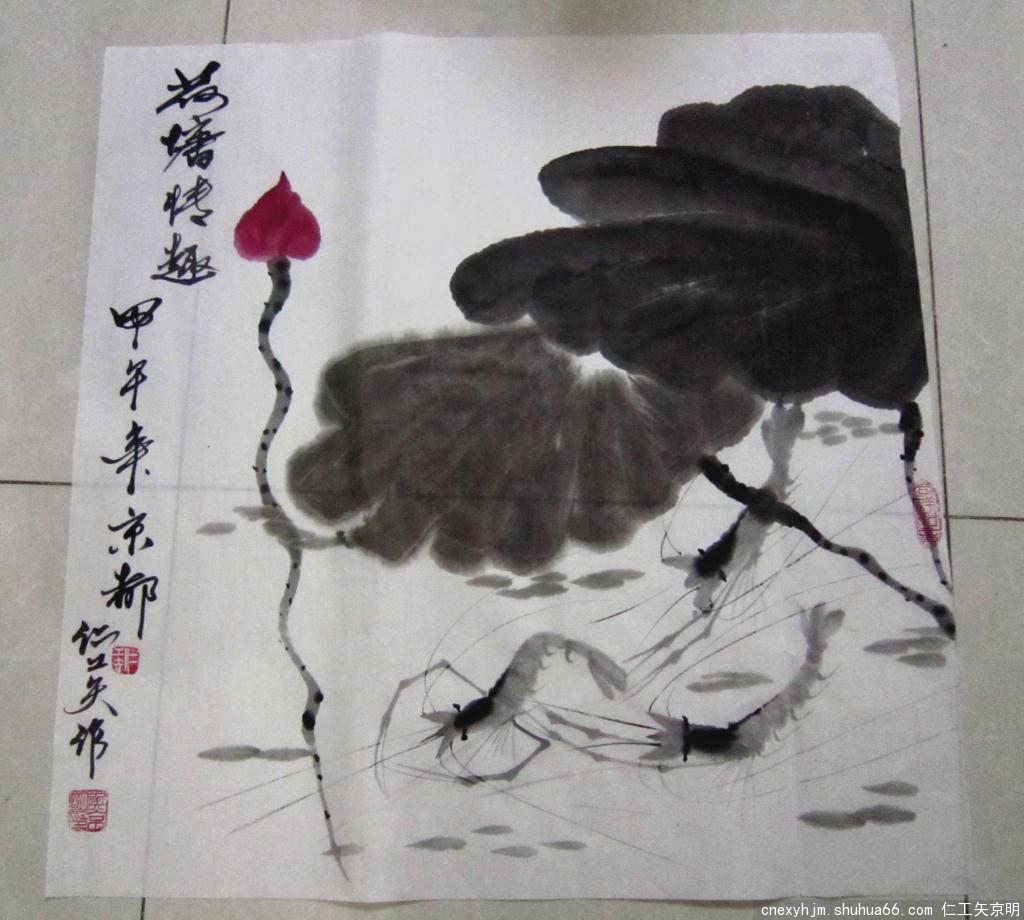 荷塘情趣
甲午年京都
仁工矢作
cnexyhjm.shuhua66.com 仁工矢京明